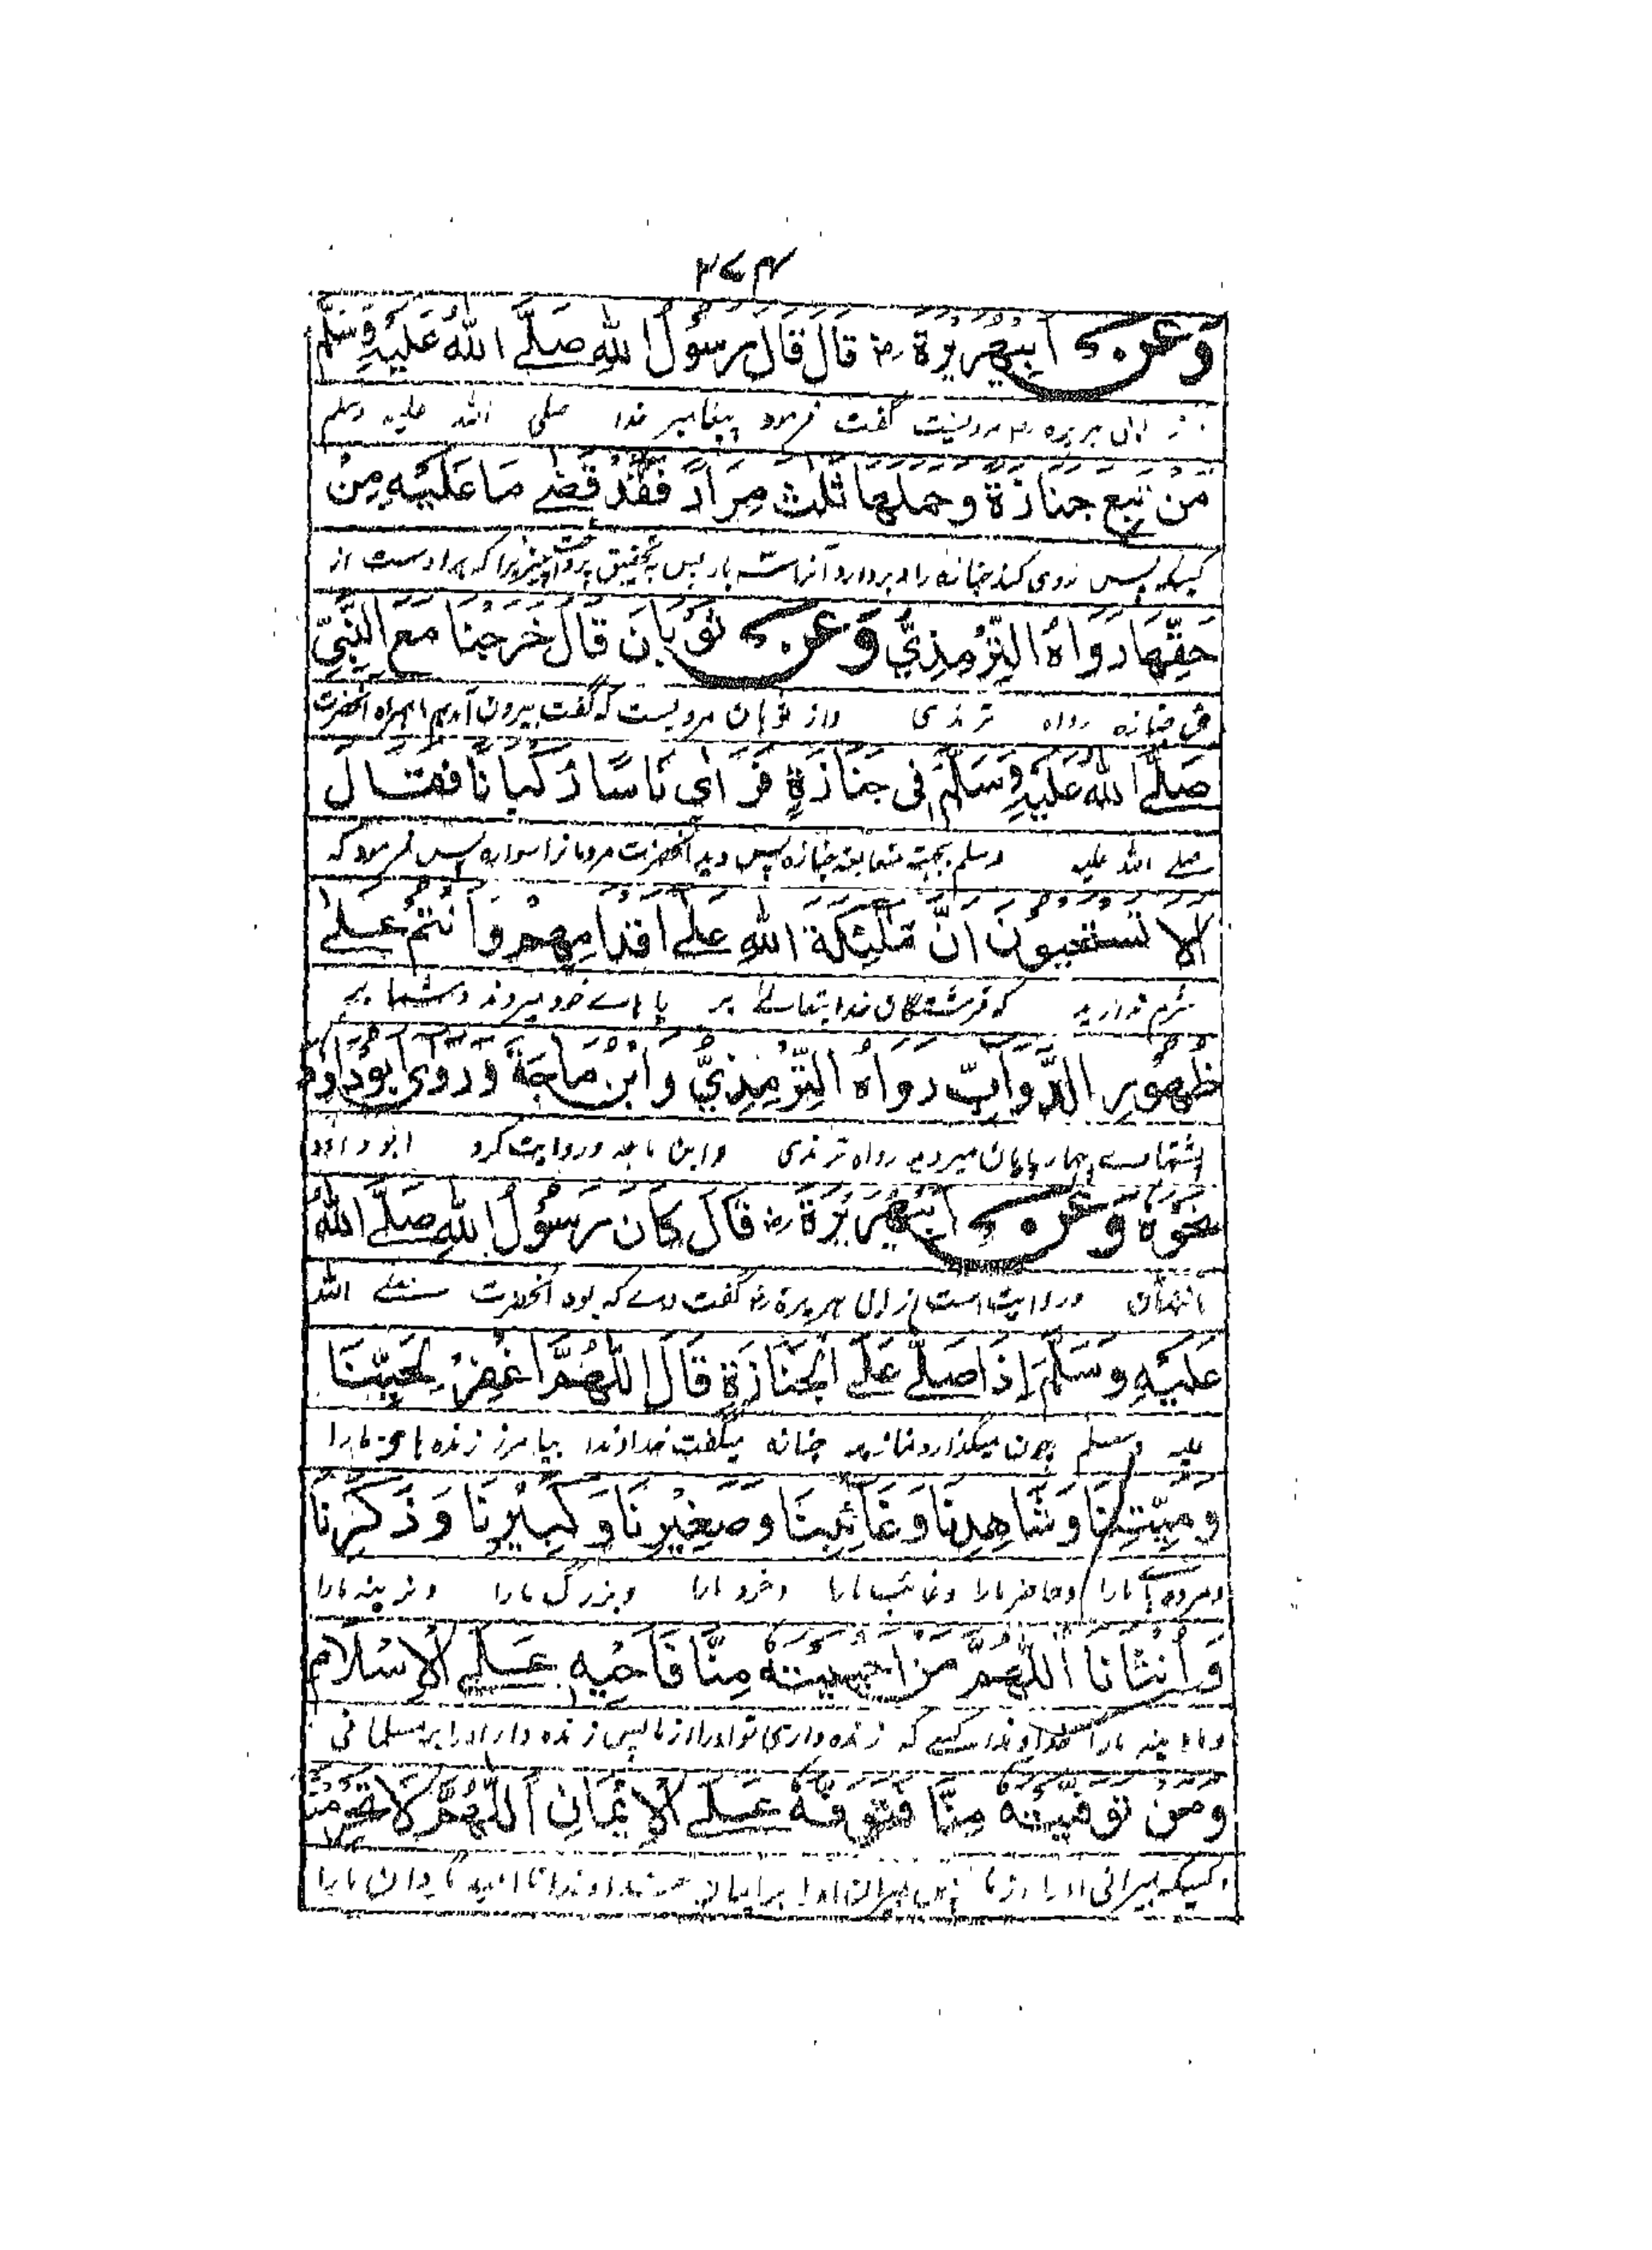 ۲۷۴
وَعَنْ اَبِيْهُرَيْرَةَ رض قَالَ قَالَ رَسُوْلُ اللهِ صَلَّے اللهُ عَلَيْهِ وَسَلَّمَ
ابی هریره رض مرویست گفت فرمود پیغامبر خدا صلی الله علیه وسلم
مَنْ تَبِعَ جَنَازَةً وحملها ثَلٰثَ مِرَارٍ فَقَدْ قَضٰے مَا عَلَيْهِ مِنْ
کسیکه پس روی کند جنازه را و بردارد آنرا سه بار پس به تحقیق از
حَقِّهَا رَوَاهُ التِّرْمِذِيُّ وَعَنْ ثَوْبَانَ قَالَ خَرَجْنَا مَعَ النَّبِيِّ
حق جنازه رواه ترمذی واز ثوبان مرویست که گفت بیرون آمدیم همراه آنحضرت
صَلَّے اللهُ عَلَيْهِ وَسَلَّمَ فِي جَنَازَةٍ فَرَاٰى نَاسًا رُكْبَانًا فَقَالَ
صلے الله علیه وسلم بجهة جنازه پس دید آنحضرت مردمانرا سواره پس فرمود که
اَلَا تَسْتَحْيُوْنَ اَنَّ مَلٰئِكَةَ اللهِ عَلٰے اَقْدَامِهِمْ وَاَنْتُمْ عَلٰے
شرم ندارید که فرشتگان خدایتعالے بر پا هاے خود میروند وشما بر
ظُهُوْرِ الدَّوَابِّ رَوَاهُ التِّرْمِذِيُّ وَابْنُ مَاجَةَ وَرَوٰى اَبُوْدَاوٗدَ
پشتهاے چهارپایان میروید رواه ترمذی وابن ماجه وروایت کرد ابو داؤد
نَحْوَهٗ وَعَنْ اَبِيْهُرَيْرَةَ رض قَالَ كَانَ رَسُوْلُ اللهِ صَلَّے اللهُ
مانند آن وروایت است از ابی هریرة رض گفت وے که بود آنحضرت صلے الله
عَلَيْهِ وَسَلَّمَ اِذَا صَلّٰے عَلَے الْجَنَازَةِ قَالَ اَللّٰهُمَّ اغْفِرْ لِحَيِّنَا
علیه وسلم چون میگذارد نماز بر جنازه میگفت خداوندا بیامرز زنده هاے مارا
وَمَيِّتِنَا وَشَاهِدِنَا وَغَائِبِنَا وَصَغِيْرِنَا وَكَبِيْرِنَا وَذَكَرِنَا
ومرده هاے مارا وحاضر مارا وغائب مارا وخرد مارا وبزرگ مارا ونرینه مارا
وَاُنْثَانَا اَللّٰهُمَّ مَنْ اَحْيَيْتَهٗ مِنَّا فَاَحْيِهٖ عَلَے الْاِسْلَامِ
ومادینه مارا خداوندا کسے که زنده داری تو اورا از ما پس زنده دار اورا بر مسلمانی
وَمَنْ تَوَفَّيْتَهٗ مِنَّا فَتَوَفَّهٗ عَلَے الْاِيْمَانِ اَللّٰهُمَّ لَا تَحْرِمْنَا
وکسیکه بمیرانی اورا از ما پس بمیران اورا بر ایمان خداوندا نا امید مگردان مارا